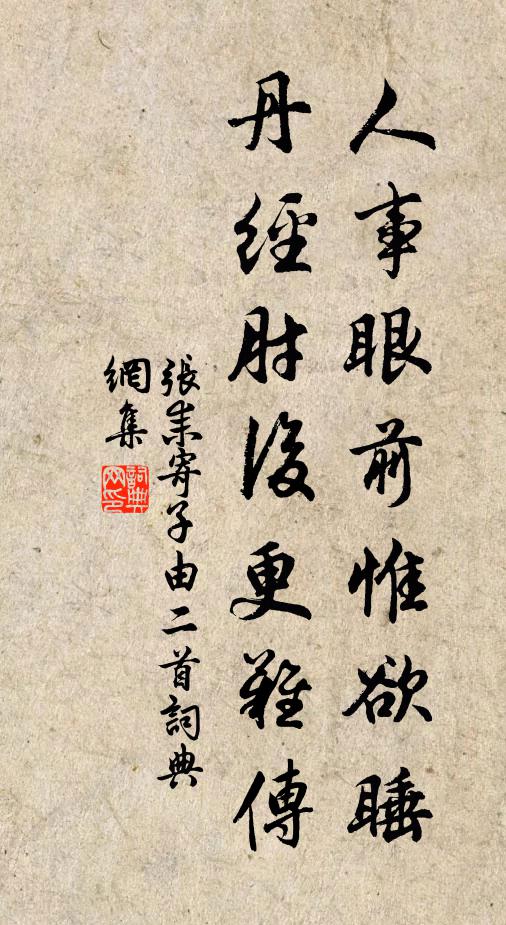 人事眼前惟欲睡
丹經肘後更難傳
張耒寄子由二首詞典
網集
詞典
网印